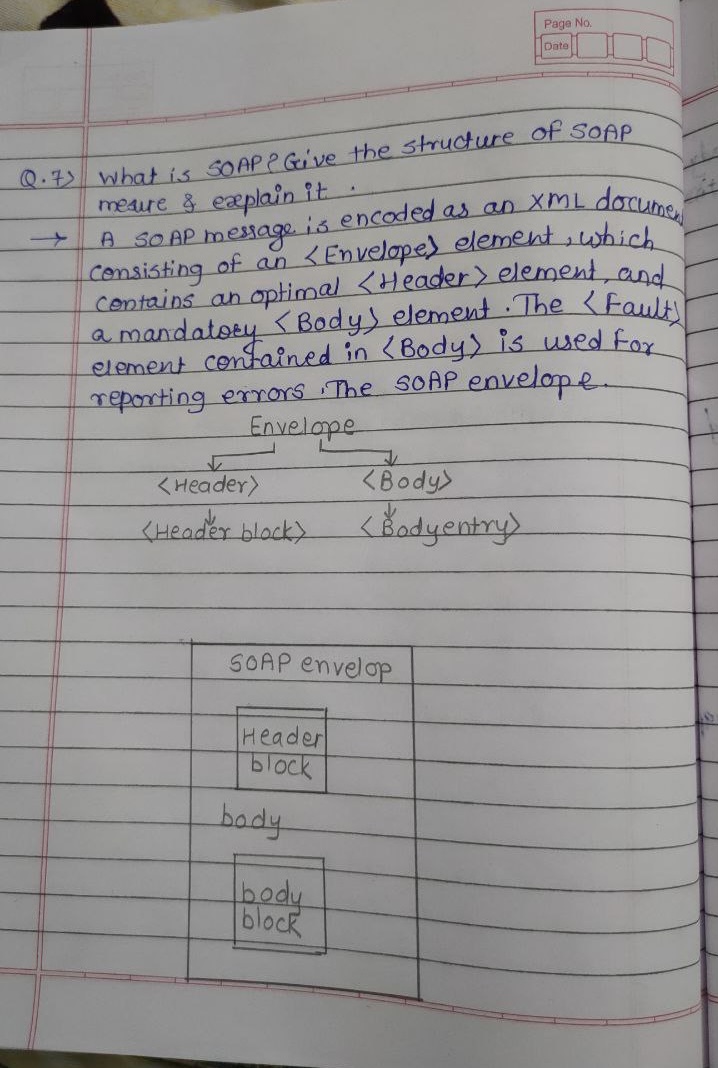 Page No.
Date
Q.7) What is SOAP? Give the structure of SOAP
mesure & explain it .
→ A SOAP message is encoded as an XML documen
consisting of an <Envelope> element, which
contains an optimal <Header> element, and
a mandatory <Body> element. The <Fault>
element contained in <Body> is used for
reporting errors. The SOAP envelope.
Envelope
<Header> <Body>
<Header block> <Bodyentry>
SOAP envelop
Header
block
body
body
block